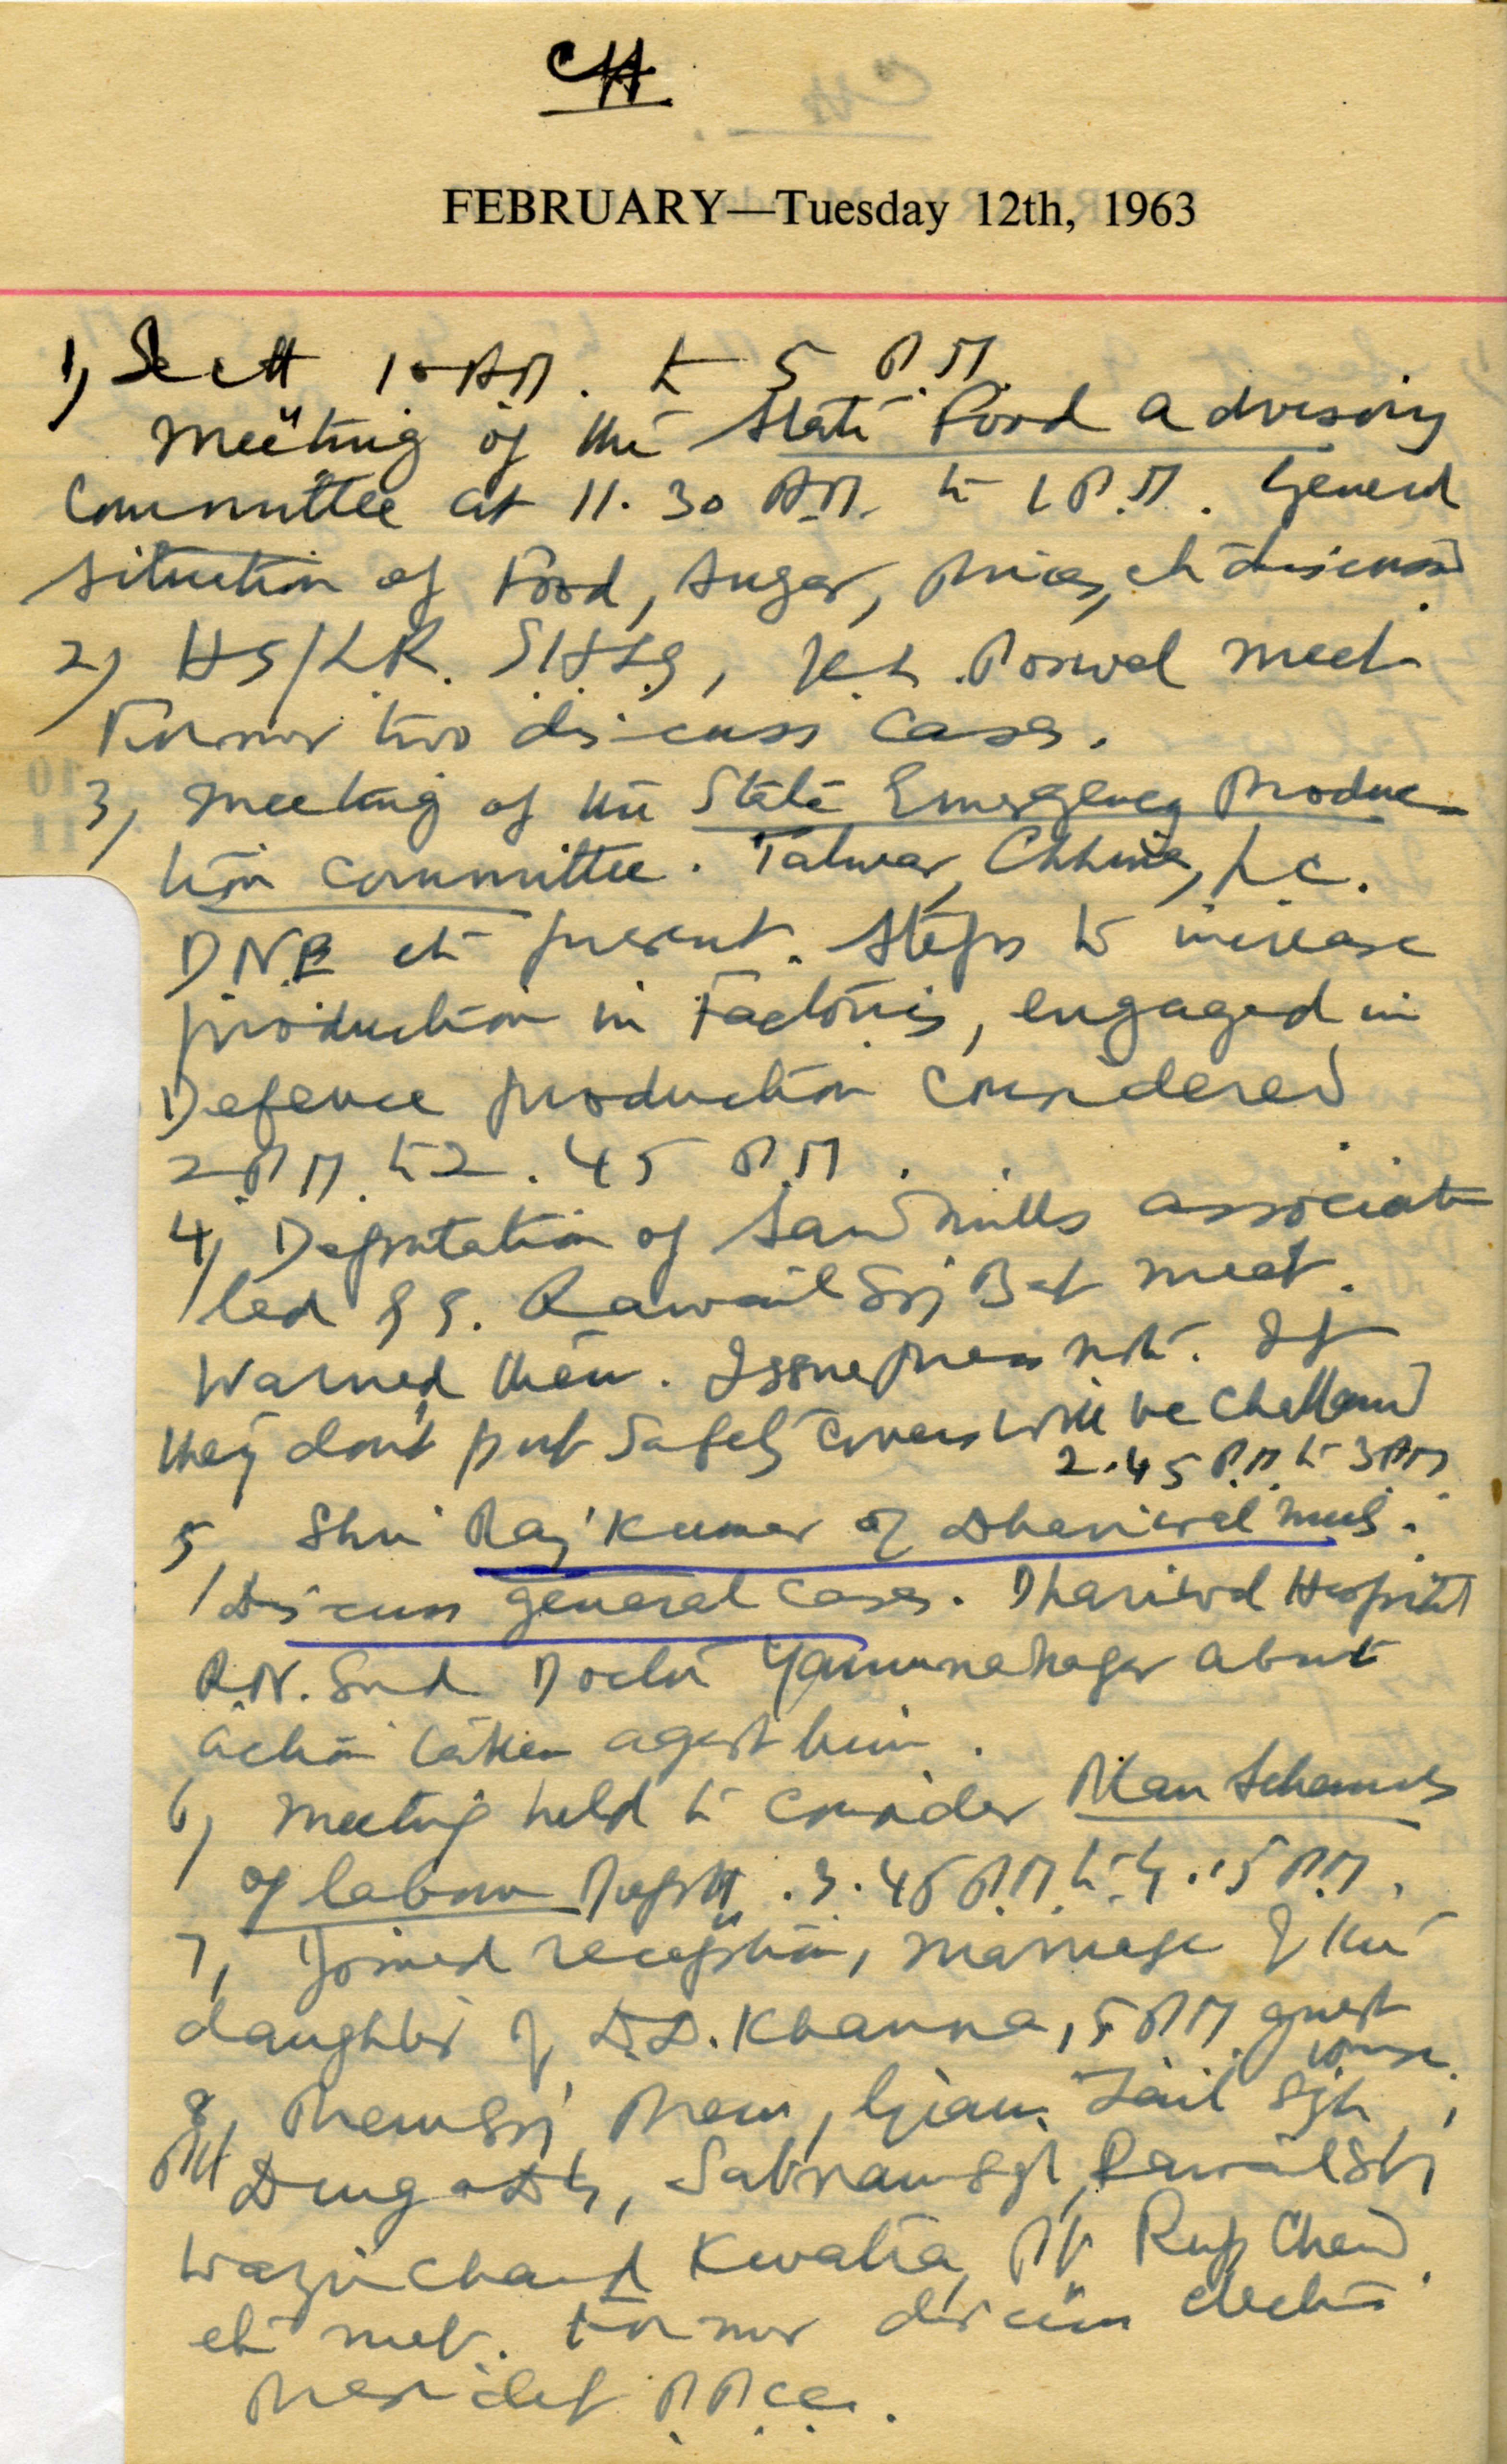 CH
FEBRUARY—Tuesday 12th, 1963
1) Sectt 10 A.M. to 5 P.M.
Meeting of the State Food Advisory
Committee at 11.30 A.M. to 1 P.M. General
situation of Food, Sugar, prices, etc discussed.
2) meet
Former two discuss cases.
3) Meeting of the State Emergency Produc
tion Committee. Talwar, L.C.
etc present. Steps to increase
production in Factories, engaged in
Defence production considered
2 P.M. to 2.45 P.M.
4) Deputation of Saw mills associati
led meet.
Warned them. Issue press note. If
they don't put Safety covers will be challand
2.45 P.M. to 3 P.M.
5) Shri Raj Kumar of Dhariwal mills.
Discuss general cases. Dhariwal Hospital
R.N. Sud Doctor Yamunanagar about
action taken agast him.
6) Meeting held to consider Plan Schemes
of labour Deptt. 3.45 P.M. to 4.15 P.M.
7) Joined reception, marriage of the
daughter of D.D. Khanna, 5 P.M. guest
house.
8) Prem Sgj Prem, Giani Zail Sgh,
Satnam Sgh, Rawail Sgh
Wazir Chand Rup Chand
etc met. Former discuss election
Presidet P.P.C.C.